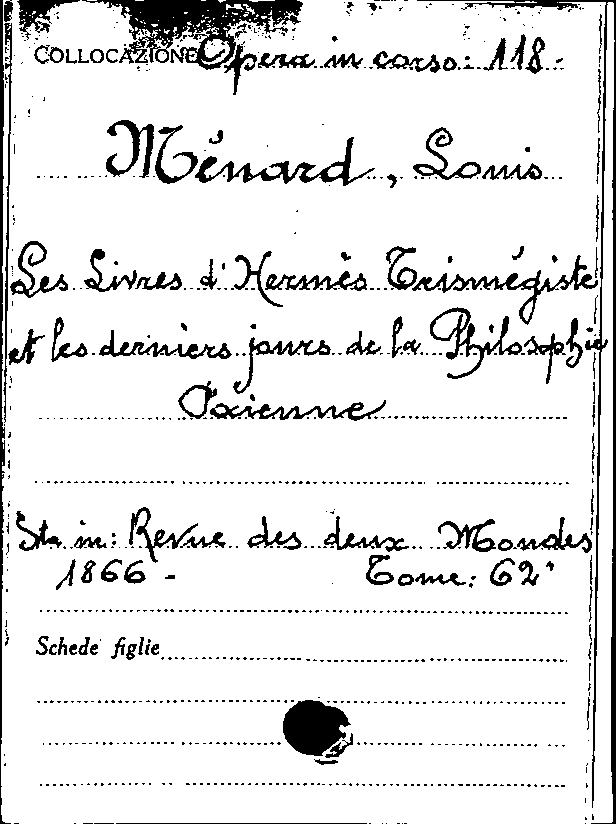 COLLOCAZIONE Opera in corso: 118 -
Ménard, Louis
Les Livres d'Hermès Trismégiste
et les derniers jours de la Philosophie
Païenne
Sta in: Revue des deux Mondes
1866 - Tome: 62°
Schede figlie